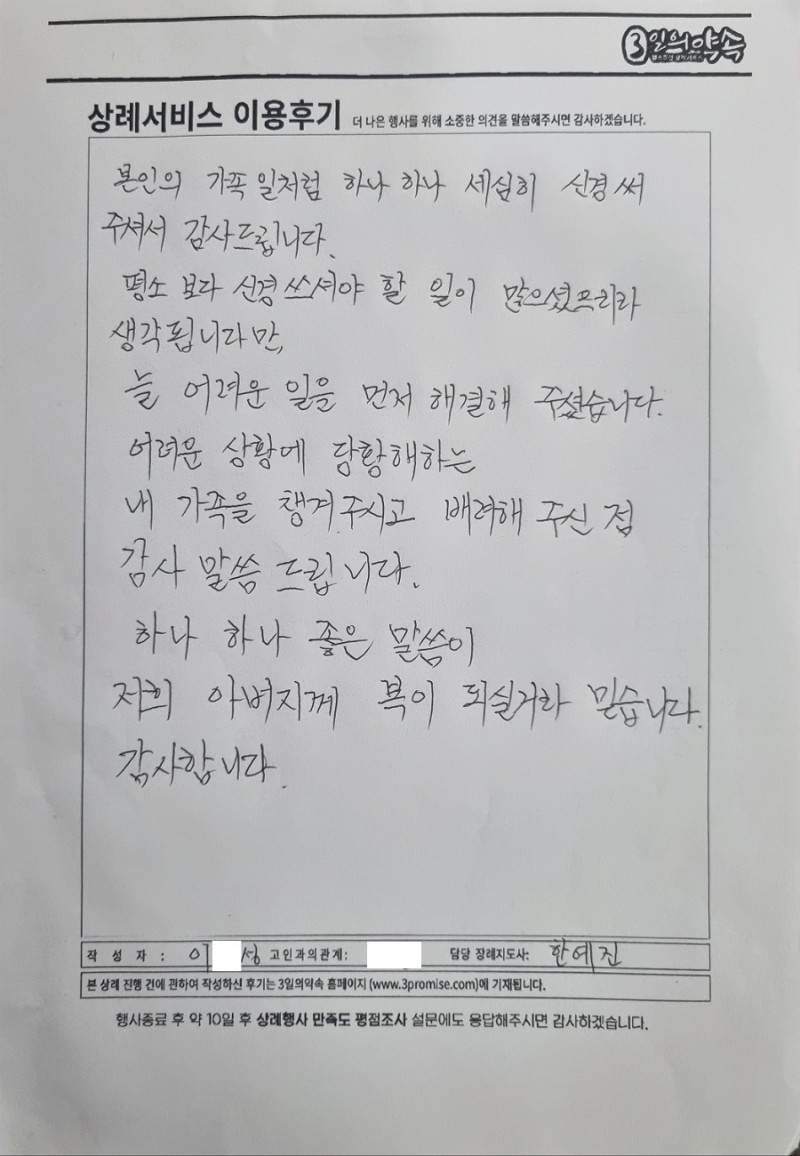 3일의약속
상례서비스 이용후기 더 나은 행사를 위해 소중한 의견을 말씀해주시면 감사하겠습니다.
본인의 가족 일처럼 하나 하나 세심히 신경써
주셔서 감사드립니다.
평소 보다 신경쓰셔야 할 일이 많으셨으리라
생각됩니다만,
늘 어려운 일을 먼저 해결해 주셨습니다.
어려운 상황에 당황해하는
내 가족을 챙겨주시고 배려해 주신 점
감사 말씀 드립니다.
하나 하나 좋은 말씀이
저희 아버지께 복이 되실거라 믿습니다.
감사합니다.
작 성 자 : 이 성 고인과의관계: 담당 장례지도사: 한예진
본 상례 진행 건에 관하여 작성하신 후기는 3일의약속 홈페이지 (www.3promise.com)에 기재됩니다.
행사종료 후 약 10일 후 상례행사 만족도 평점조사 설문에도 응답해주시면 감사하겠습니다.